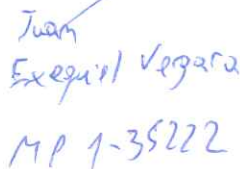 Juan
Exequiel Vergara
MP 1-35222